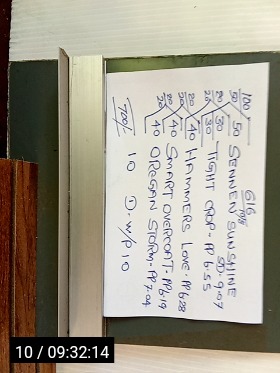 616
705
100
50 50 SENNEN SUNSHINE SD. 9.07
20 30 TIGHT CROP - PP 6.55
20 30
20 40 HAMMERS LOVE - PP 6.28
20 40 SMART OVERCOAT - PP 6.19
20 40 OREGAN STORM - PP 7.04
700/- 10 D. W/P 10
10 / 09:32:14